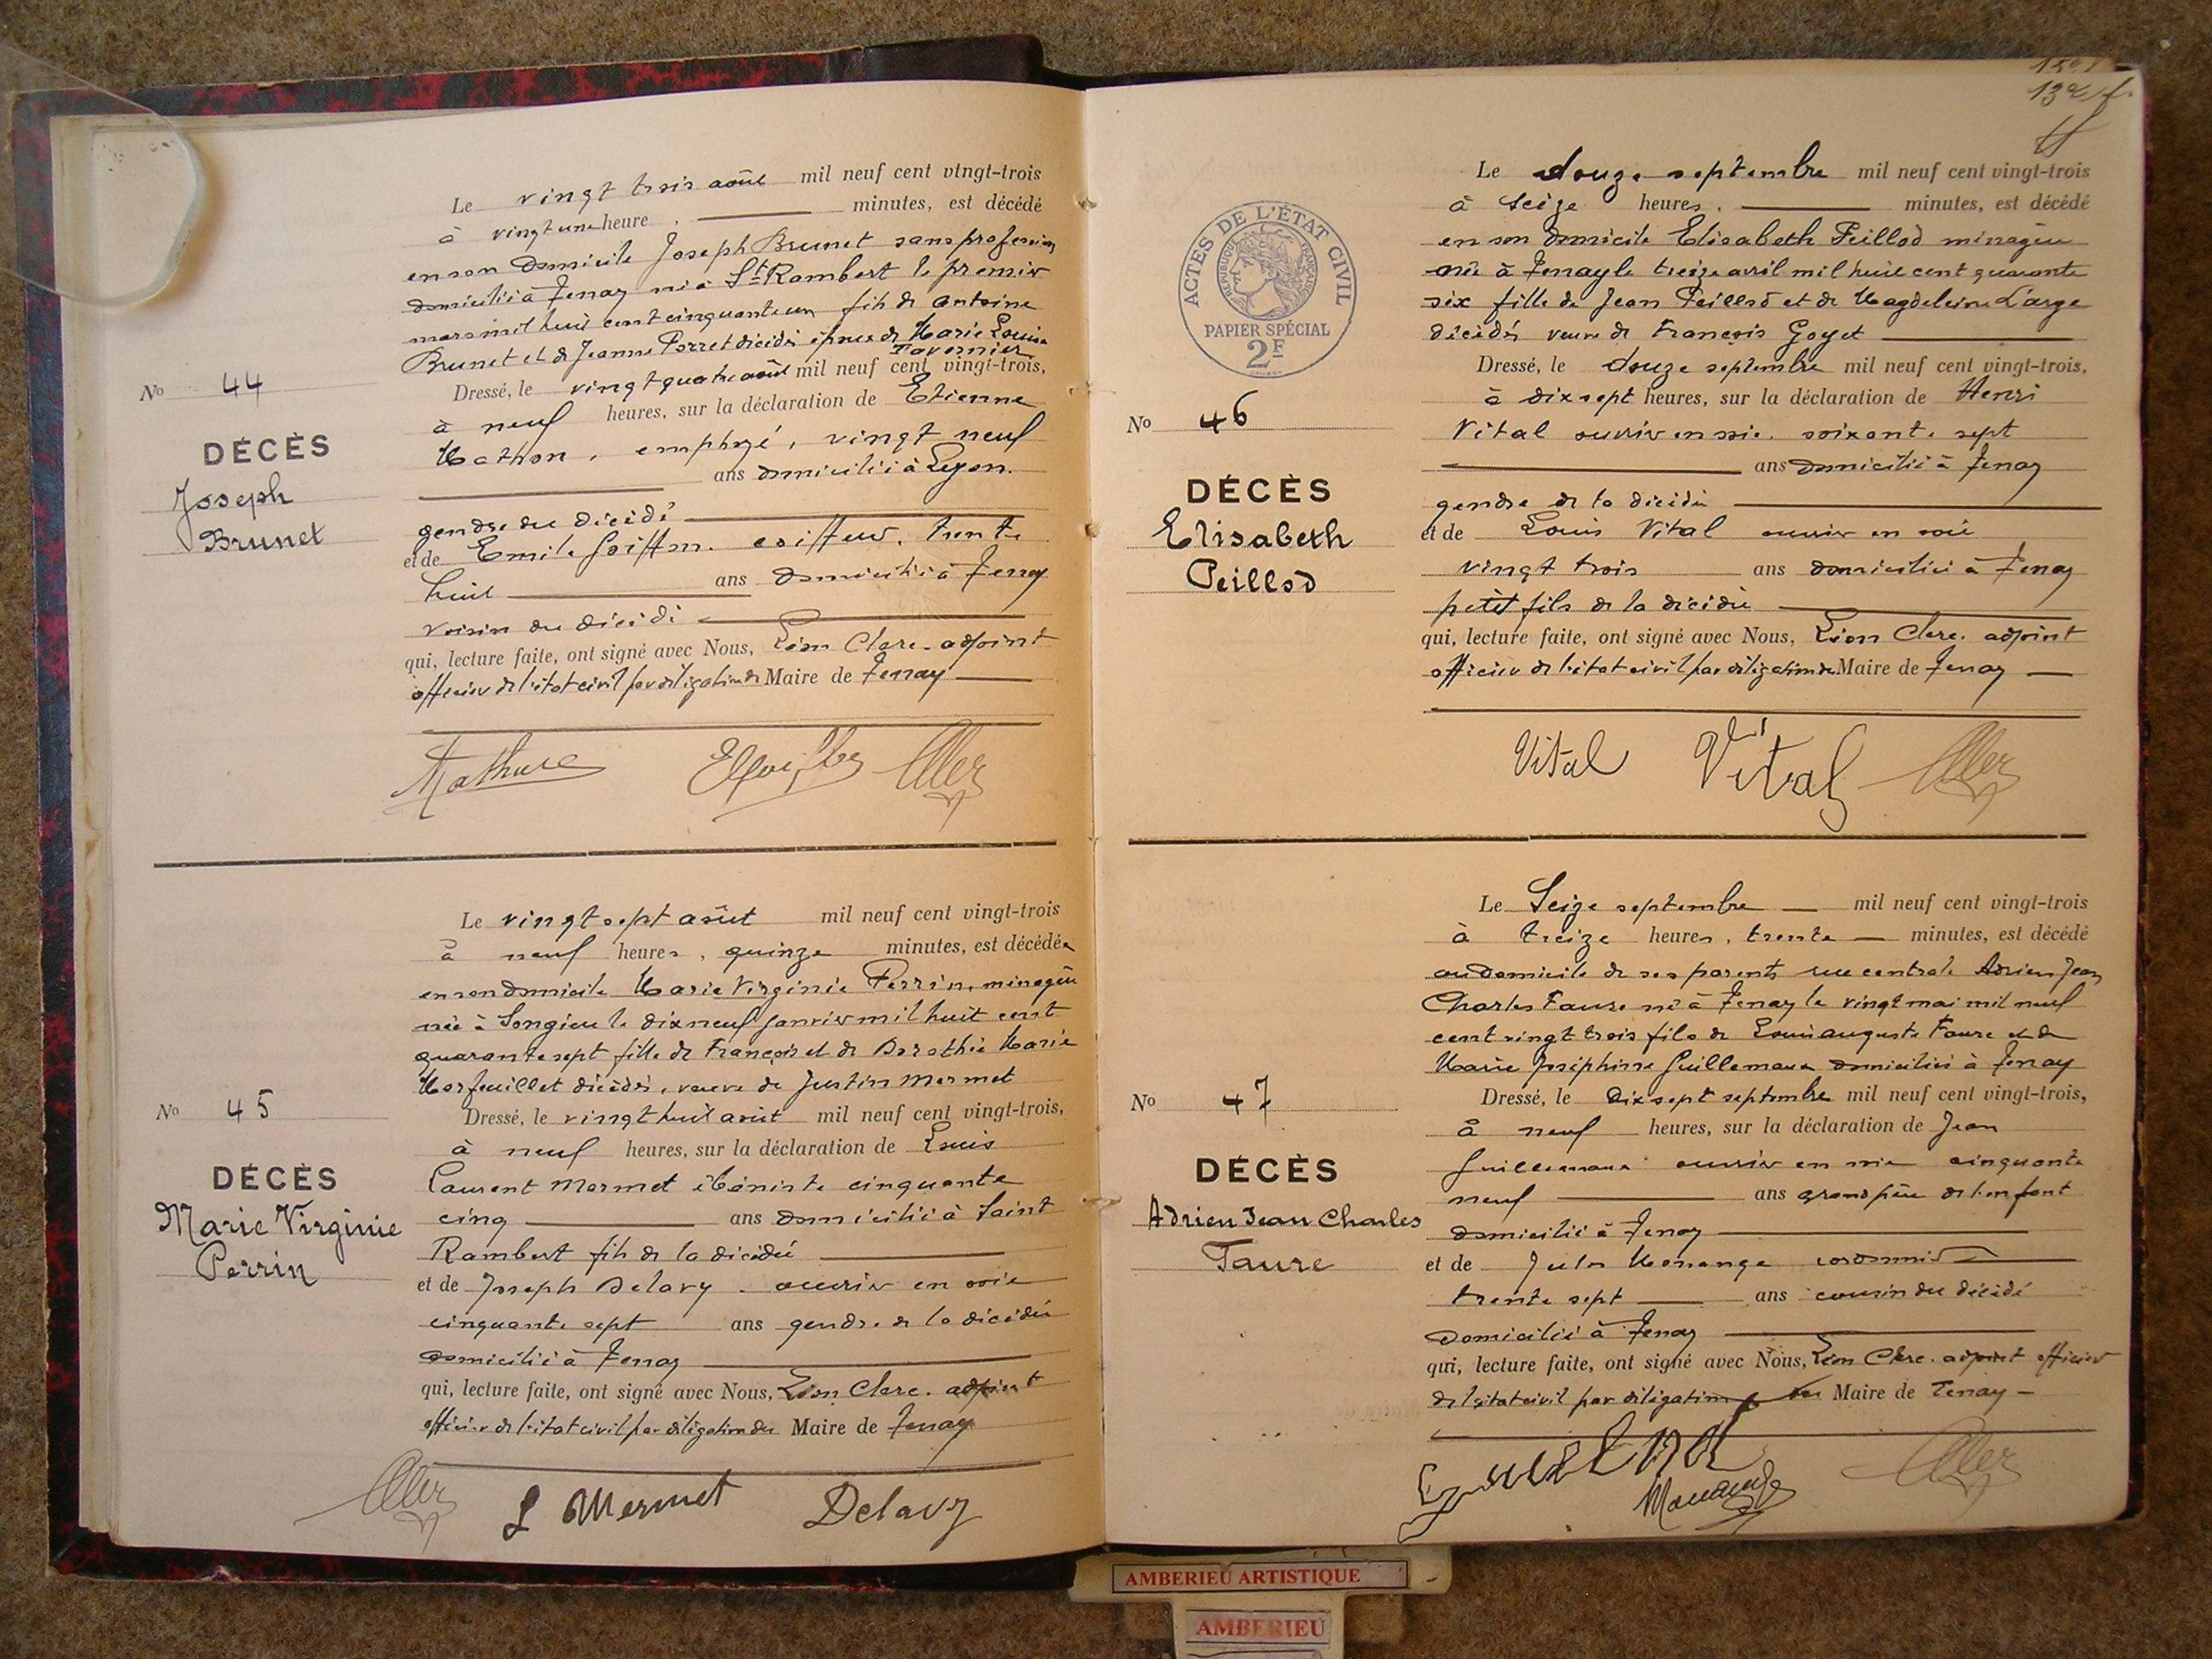 Le vingt trois août mil neuf cent vingt-trois
à vingt une heure, minutes, est décédé
en son domicile Joseph Brunet sans profession
domicilié à Tenay né à St Rambert le premier
mars mil huit cent cinquante un fils de Antoine
Brunet et de Jeanne Porret décédés époux de Marie Louise
Tavernier
No 44
DÉCÈS
Joseph
Brunet
Dressé, le vingt quatre août mil neuf cent vingt-trois,
à neuf heures, sur la déclaration de Etienne
Mathon, employé, vingt neuf
ans domicilié à Lyon.
gendre du décédé
et de Emile Goiffon. coiffeur, trente
huit ans domicilié à Tenay
voisin du décédé
qui, lecture faite, ont signé avec Nous, Léon Clerc. adjoint
officier de l'état civil par délégation du Maire de Tenay
Le vingt sept août mil neuf cent vingt-trois
à neuf heures, quinze minutes, est décédée
en son domicile Marie Virginie Perrin, ménagère
née à Songieu le dix neuf janvier mil huit cent
quarante sept fille de François et de Dorothée Marie
Morfeuillet décédés, veuve de Justin Mermet
No 45
DÉCÈS
Marie Virginie
Perrin
Dressé, le vingt huit août mil neuf cent vingt-trois,
à neuf heures, sur la déclaration de Louis
Laurent Mermet ébéniste cinquante
cinq ans domicilié à Saint
Rambert fils de la décédée
et de Joseph Delavy. ouvrier en soie
cinquante sept ans gendre de la décédée
domicilié à Tenay
qui, lecture faite, ont signé avec Nous, Léon Clerc. adjoint
officier de l'état civil par délégation du Maire de Tenay
L Mermet Delavy
132
ACTES DE L'ÉTAT CIVIL
RÉPUBLIQUE FRANÇAISE
PAPIER SPÉCIAL
2F
Le douze septembre mil neuf cent vingt-trois
à seize heures, minutes, est décédé
en son domicile Elisabeth Peillod ménagère
née à Tenay le treize avril mil huit cent quarante
six fille de Jean Peillod et de Magdeleine Large
décédés veuve de François Goyet
No 46
DÉCÈS
Elisabeth
Peillod
Dressé, le douze septembre mil neuf cent vingt-trois,
à dix sept heures, sur la déclaration de Henri
Vital ouvrier en soie. soixante sept
ans domicilié à Tenay
gendre de la décédée
et de Louis Vital ouvrier en soie
vingt trois ans domicilié à Tenay
petit fils de la décédée
qui, lecture faite, ont signé avec Nous, Léon Clerc. adjoint
officier de l'état civil par délégation du Maire de Tenay
Vital Vital
Le Seize septembre mil neuf cent vingt-trois
à treize heures, trente minutes, est décédé
au domicile de ses parents rue centrale Adrien Jean
Charles Faure né à Tenay le vingt mai mil neuf
cent vingt trois fils de Louis Auguste Faure et de
Marie Joséphine Guillemaux domiciliés à Tenay
No 47
DÉCÈS
Adrien Jean Charles
Faure
Dressé, le dix sept septembre mil neuf cent vingt-trois,
à neuf heures, sur la déclaration de Jean
Guillemaux ouvrier en soie cinquante
neuf ans grand père de l'enfant
domicilié à Tenay
et de Jules Monange cordonnier
trente sept ans cousin du décédé
domicilié à Tenay
qui, lecture faite, ont signé avec Nous, Léon Clerc. adjoint officier
de l'état civil par délégation du Maire de Tenay
Monange
AMBERIEU ARTISTIQUE
AMBERIEU